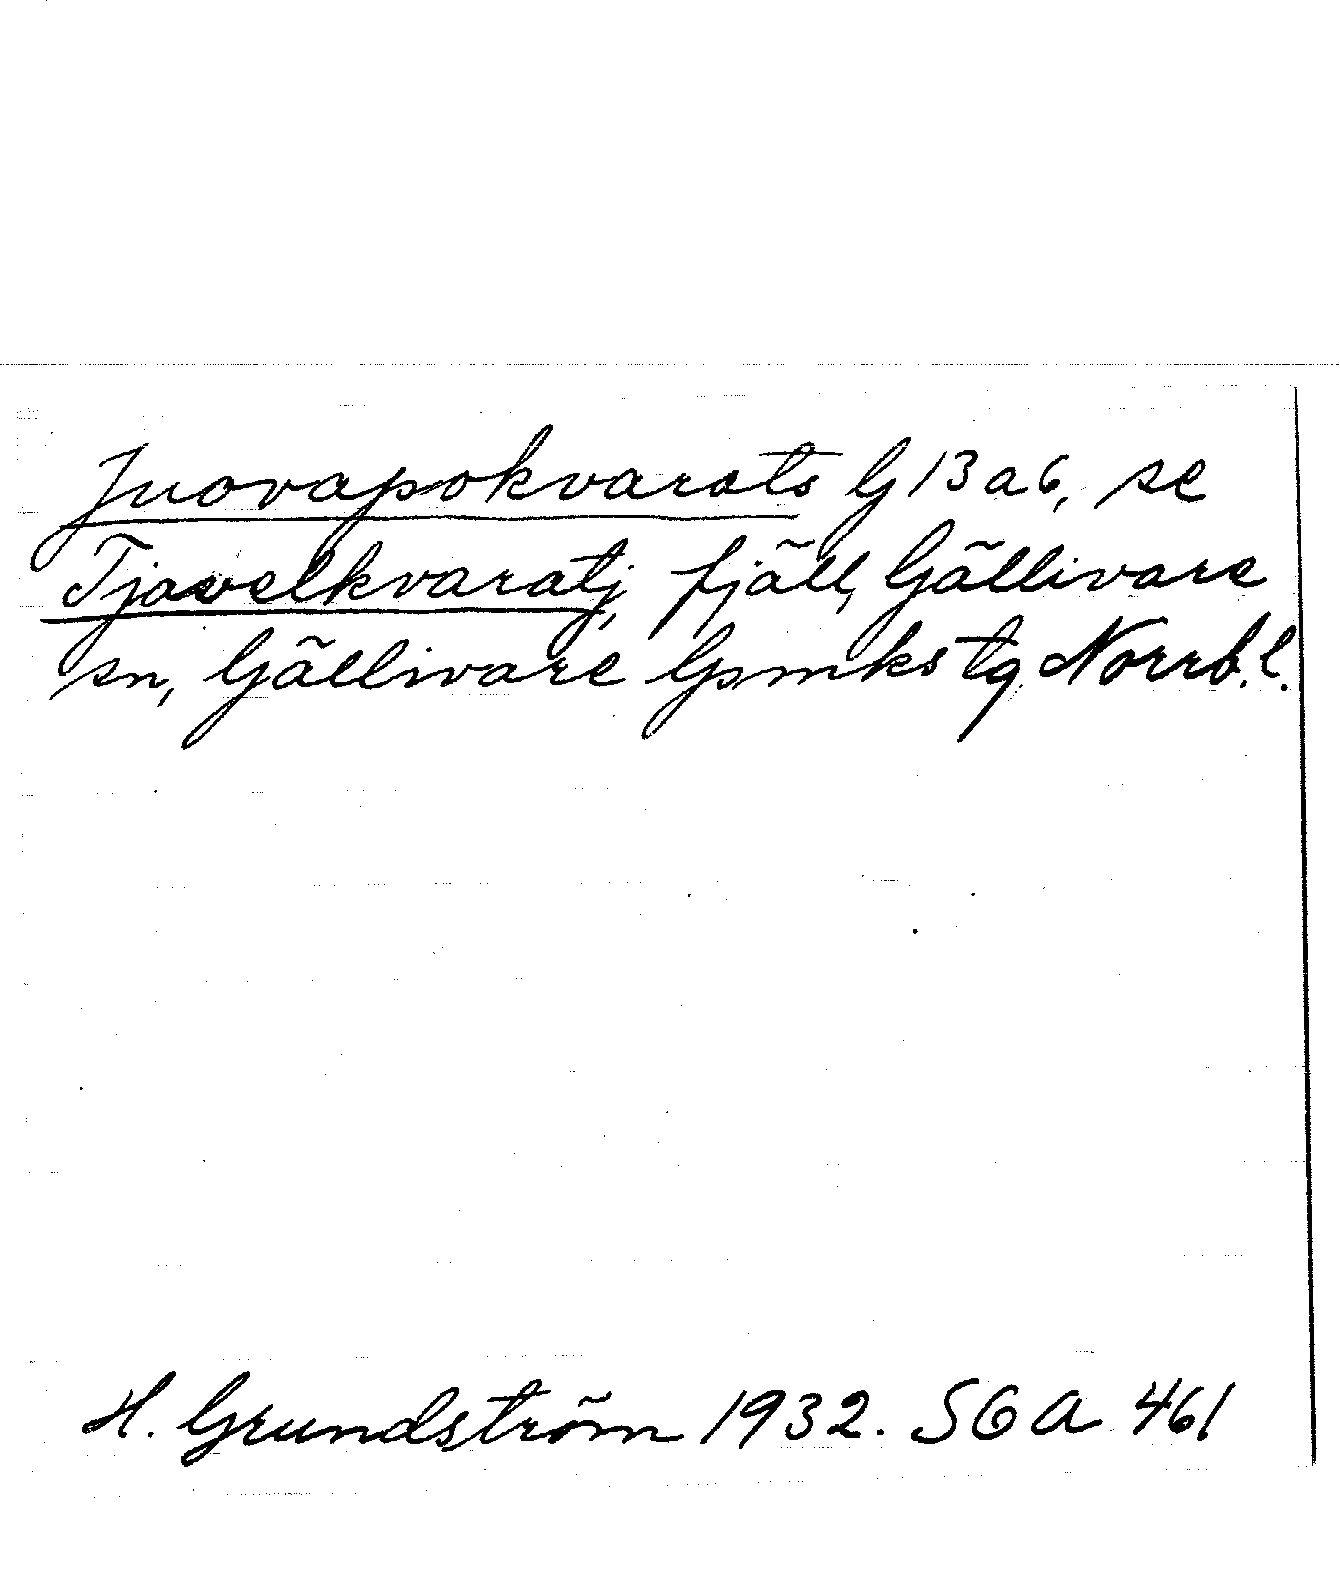 Juovapokvarats G 13 a 6, se
Tjavelkvaratj, fjäll, Gällivare
sn, Gällivare Gsmkstg Norrb.l.
H. Grundström 1932. SOA 461